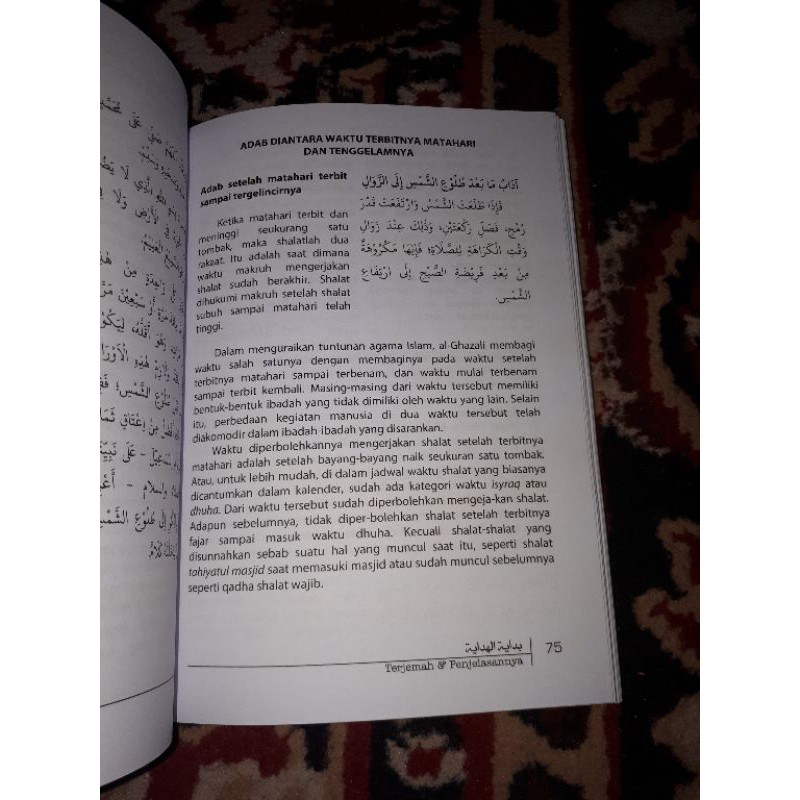 ADAB DIANTARA WAKTU TERBITNYA MATAHARI
DAN TENGGELAMNYA
Adab setelah matahari terbit
sampai tergelincirnya
Ketika matahari terbit dan
meninggi seukurang satu
tombak, maka shalatlah dua
rakaat. Itu adalah saat dimana
waktu makruh mengerjakan
shalat sudah berakhir. Shalat
dihukumi makruh setelah shalat
subuh sampai matahari telah
tinggi.
آدَابُ مَا بَعْدَ طُلُوْعِ الشَّمْسِ إِلَى الزَّوَالِ
فَإِذَا طَلَعَتِ الشَّمْسُ وَارْتَفَعَتْ قَدْرَ
رُمْحٍ، فَصَلِّ رَكْعَتَيْنِ، وَذٰلِكَ عِنْدَ زَوَالِ
وَقْتِ الْكَرَاهَةِ لِلصَّلَاةِ؛ فَإِنَّهَا مَكْرُوْهَةٌ
مِنْ بَعْدِ فَرِيْضَةِ الصُّبْحِ إِلَى ارْتِفَاعِ
الشَّمْسِ.
Dalam menguraikan tuntunan agama Islam, al-Ghazali membagi
waktu salah satunya dengan membaginya pada waktu setelah
terbitnya matahari sampai terbenam, dan waktu mulai terbenam
sampai terbit kembali. Masing-masing dari waktu tersebut memiliki
bentuk-bentuk ibadah yang tidak dimiliki oleh waktu yang lain. Selain
itu, perbedaan kegiatan manusia di dua waktu tersebut telah
diakomodir dalam ibadah-ibadah yang disarankan.
Waktu diperbolehkannya mengerjakan shalat setelah terbitnya
matahari adalah setelah bayang-bayang naik seukuran satu tombak.
Atau, untuk lebih mudah, di dalam jadwal waktu shalat yang biasanya
dicantumkan dalam kalender, sudah ada kategori waktu isyraq atau
dhuha. Dari waktu tersebut sudah diperbolehkan mengeja-kan shalat.
Adapun sebelumnya, tidak diper-bolehkan shalat setelah terbitnya
fajar sampai masuk waktu dhuha. Kecuali shalat-shalat yang
disunnahkan sebab suatu hal yang muncul saat itu, seperti shalat
tahiyatul masjid saat memasuki masjid atau sudah muncul sebelumnya
seperti qadha shalat wajib.
بداية الهداية
Terjemah & Penjelasannya
75